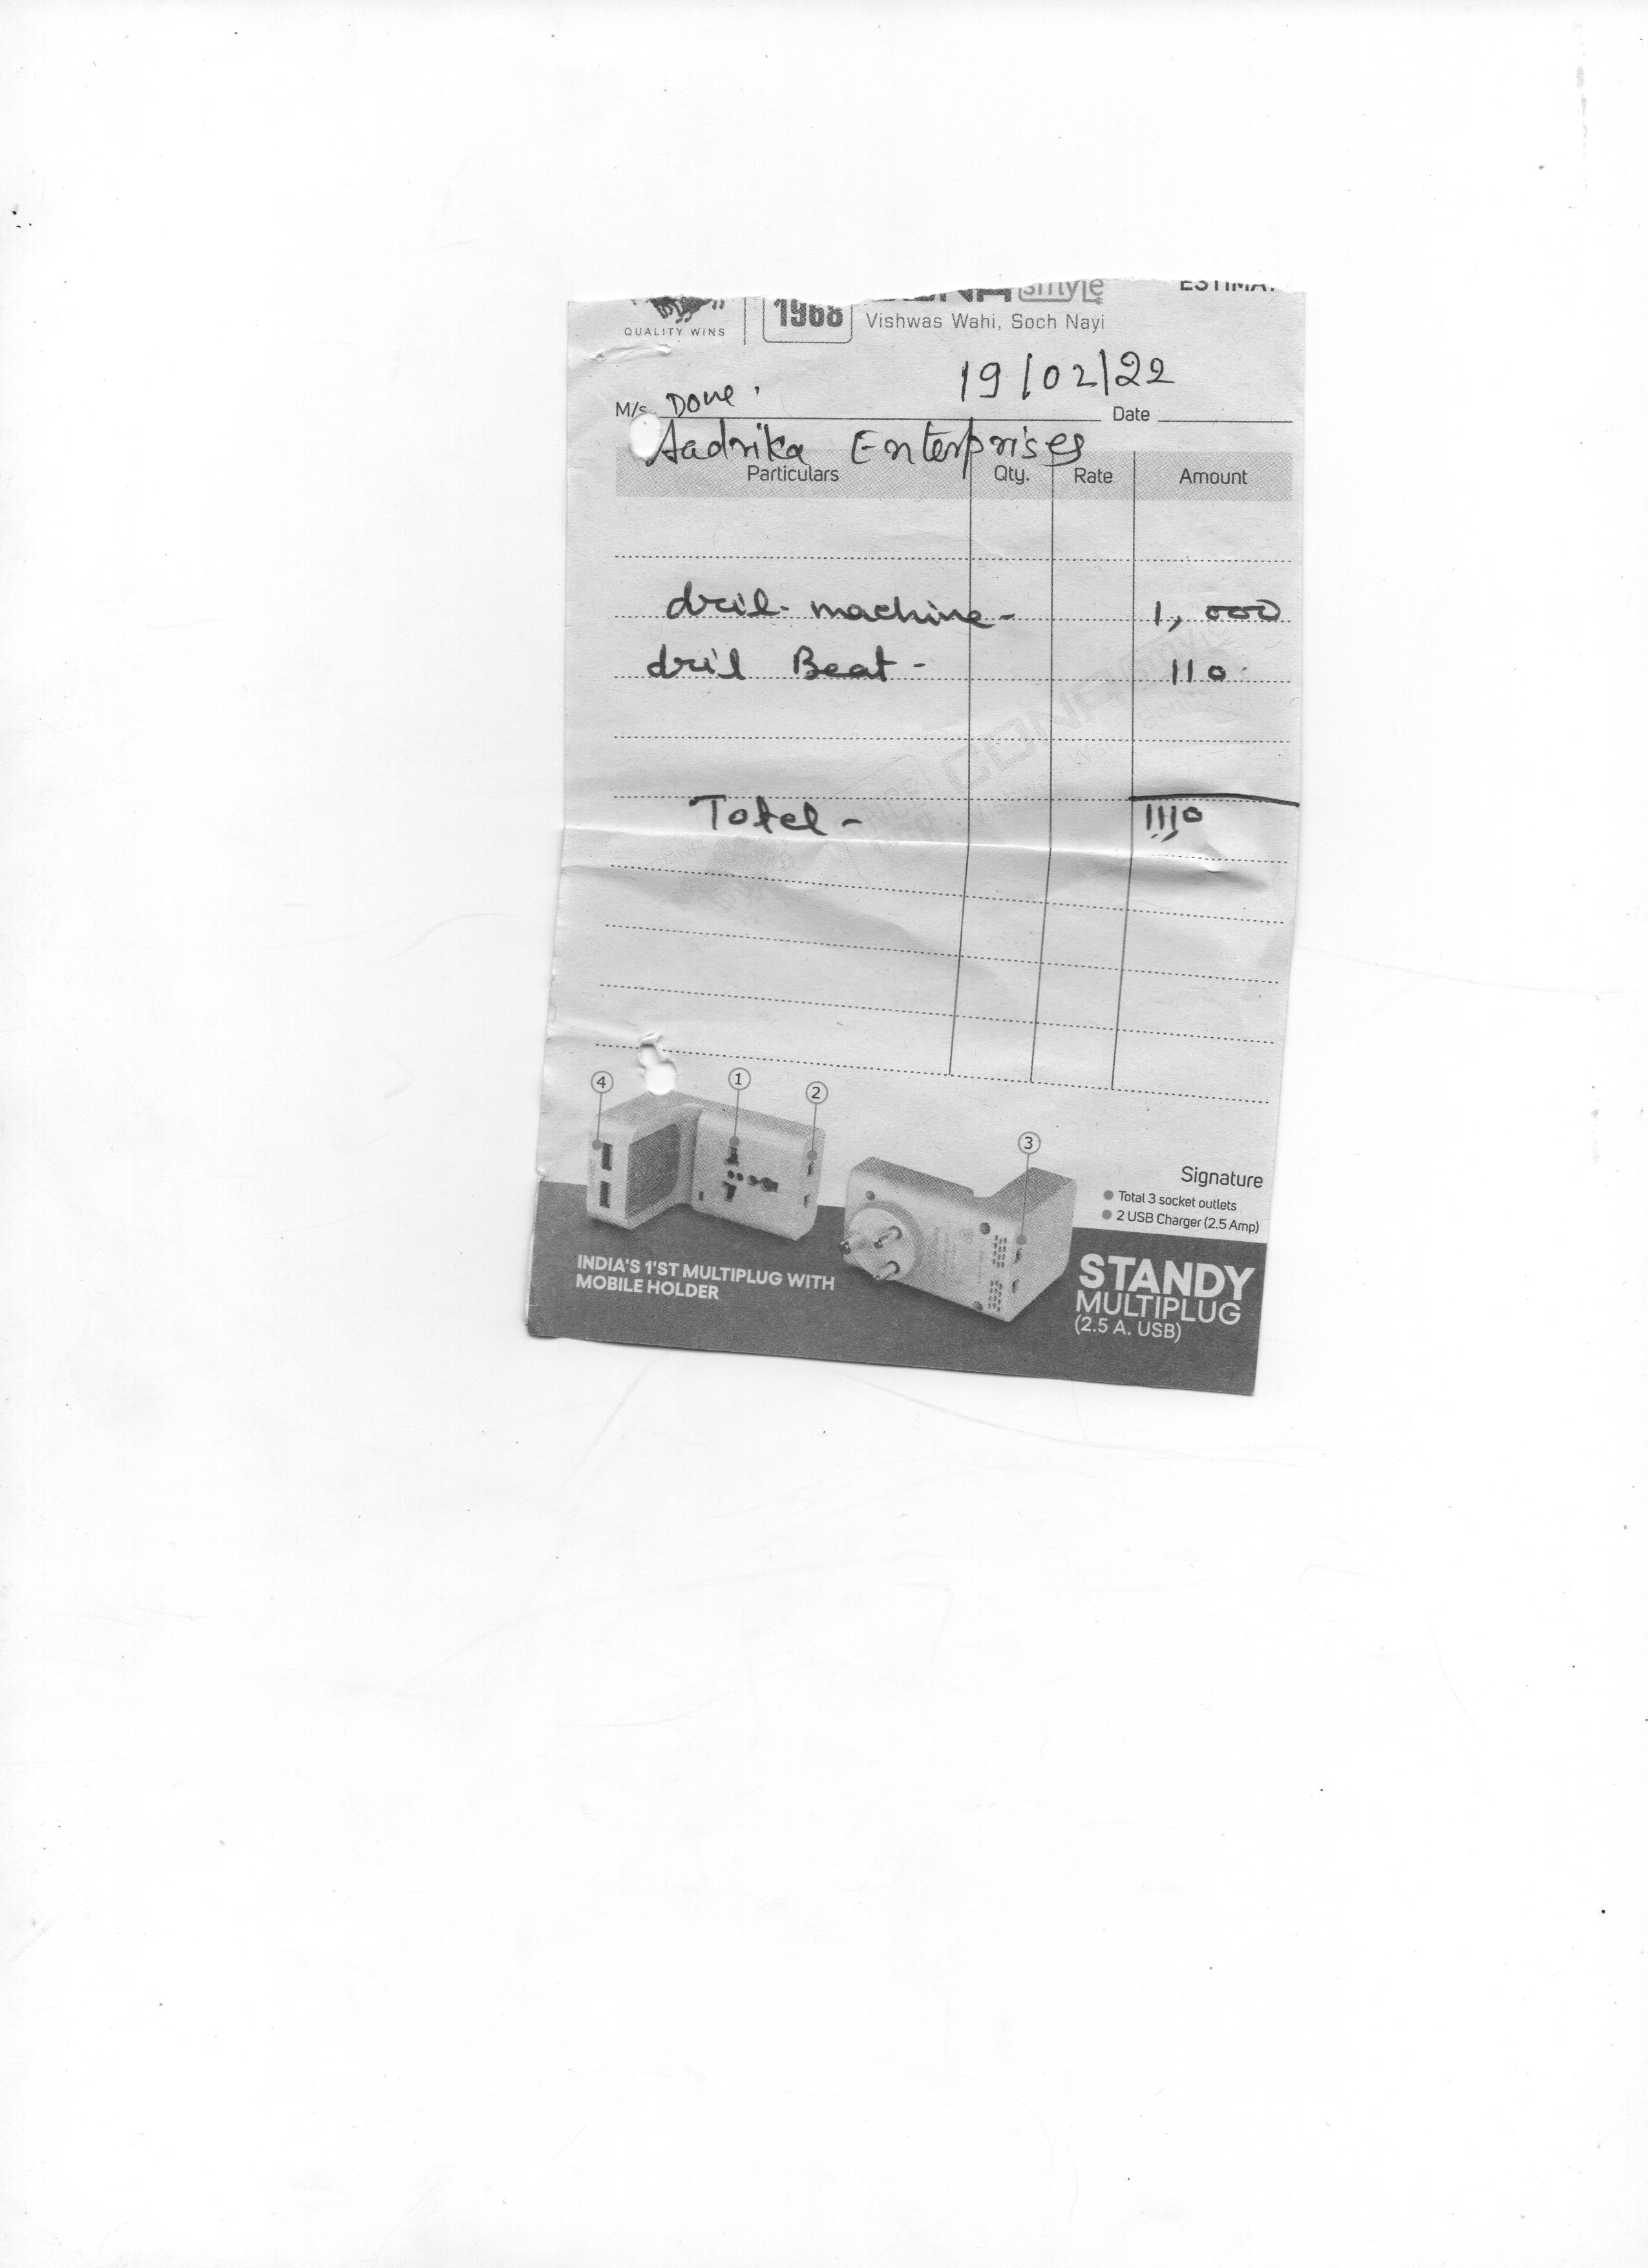 smyle ESTIMA
QUALITY WINS
1968
Vishwas Wahi, Soch Nayi
19/02/22
M/s. Done.
Date
Aadrika Enterprises
Particulars Qty. Rate Amount
dril- machine- 1,000
dril Beat- 110
Totel- 1110
CONA smyle
4 1 2
3
Signature
Total 3 socket outlets
2 USB Charger (2.5 Amp)
INDIA'S 1'ST MULTIPLUG WITH
MOBILE HOLDER
STANDY
MULTIPLUG
(2.5 A. USB)